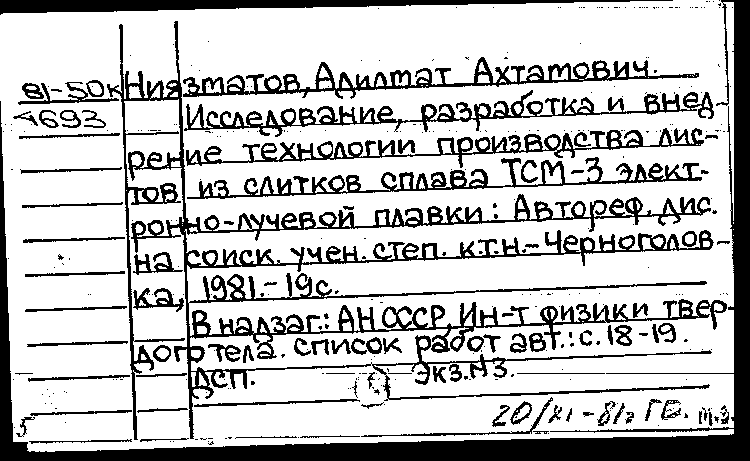 81-50к Ниязматов, Адилтат Ахтатович.
1693 Исследование, разработка и внед-
рение технологии производства лис-
тов из слитков сплава ТСМ-3 элект-
ронно-лучевой плавки: Автореф. дис.
на соиск. учен. степ. к.т.н.- Черноголов-
ка, 1981.-19с.
В надзаг.: АН СССР, Ин-т физики твер-
дого тела. список работ авт.: с. 18-19.
ДСП. Экз.N3.
20/XI-81г ГБ. т.з.
5